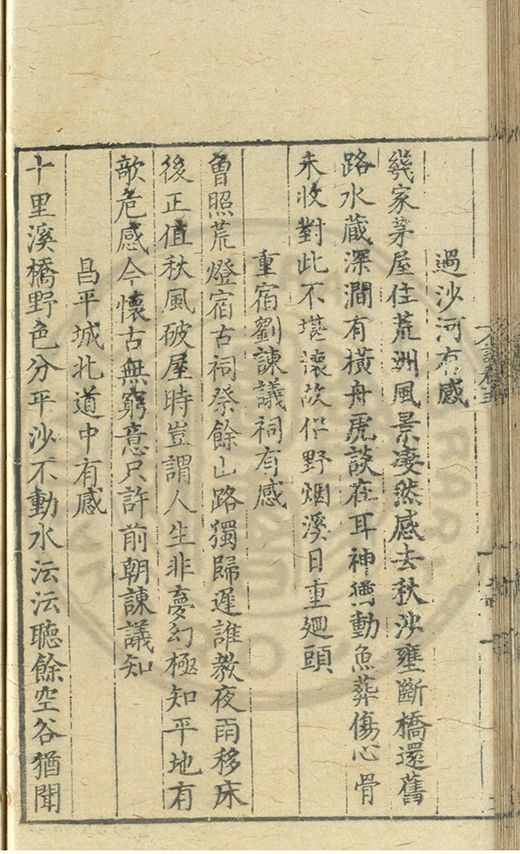 過沙河有感
幾家茅屋住荒洲風景凄然感去秋沙壅斷橋還舊
路水蔵深澗有橫舟虎談在耳神猶動魚葬傷心骨
未收對此不堪懷故侣野烟溪日重廻頭
重宿劉諫議祠有感
曾照荒燈宿古祠祭餘山路獨歸遲誰教夜雨移床
後正值秋風破屋時豈謂人生非夢幻極知平地有
欹危感今懷古無窮意只許前朝諫議知
昌平城北道中有感
十里溪橋野色分平沙不動水沄沄聽餘空谷猶聞